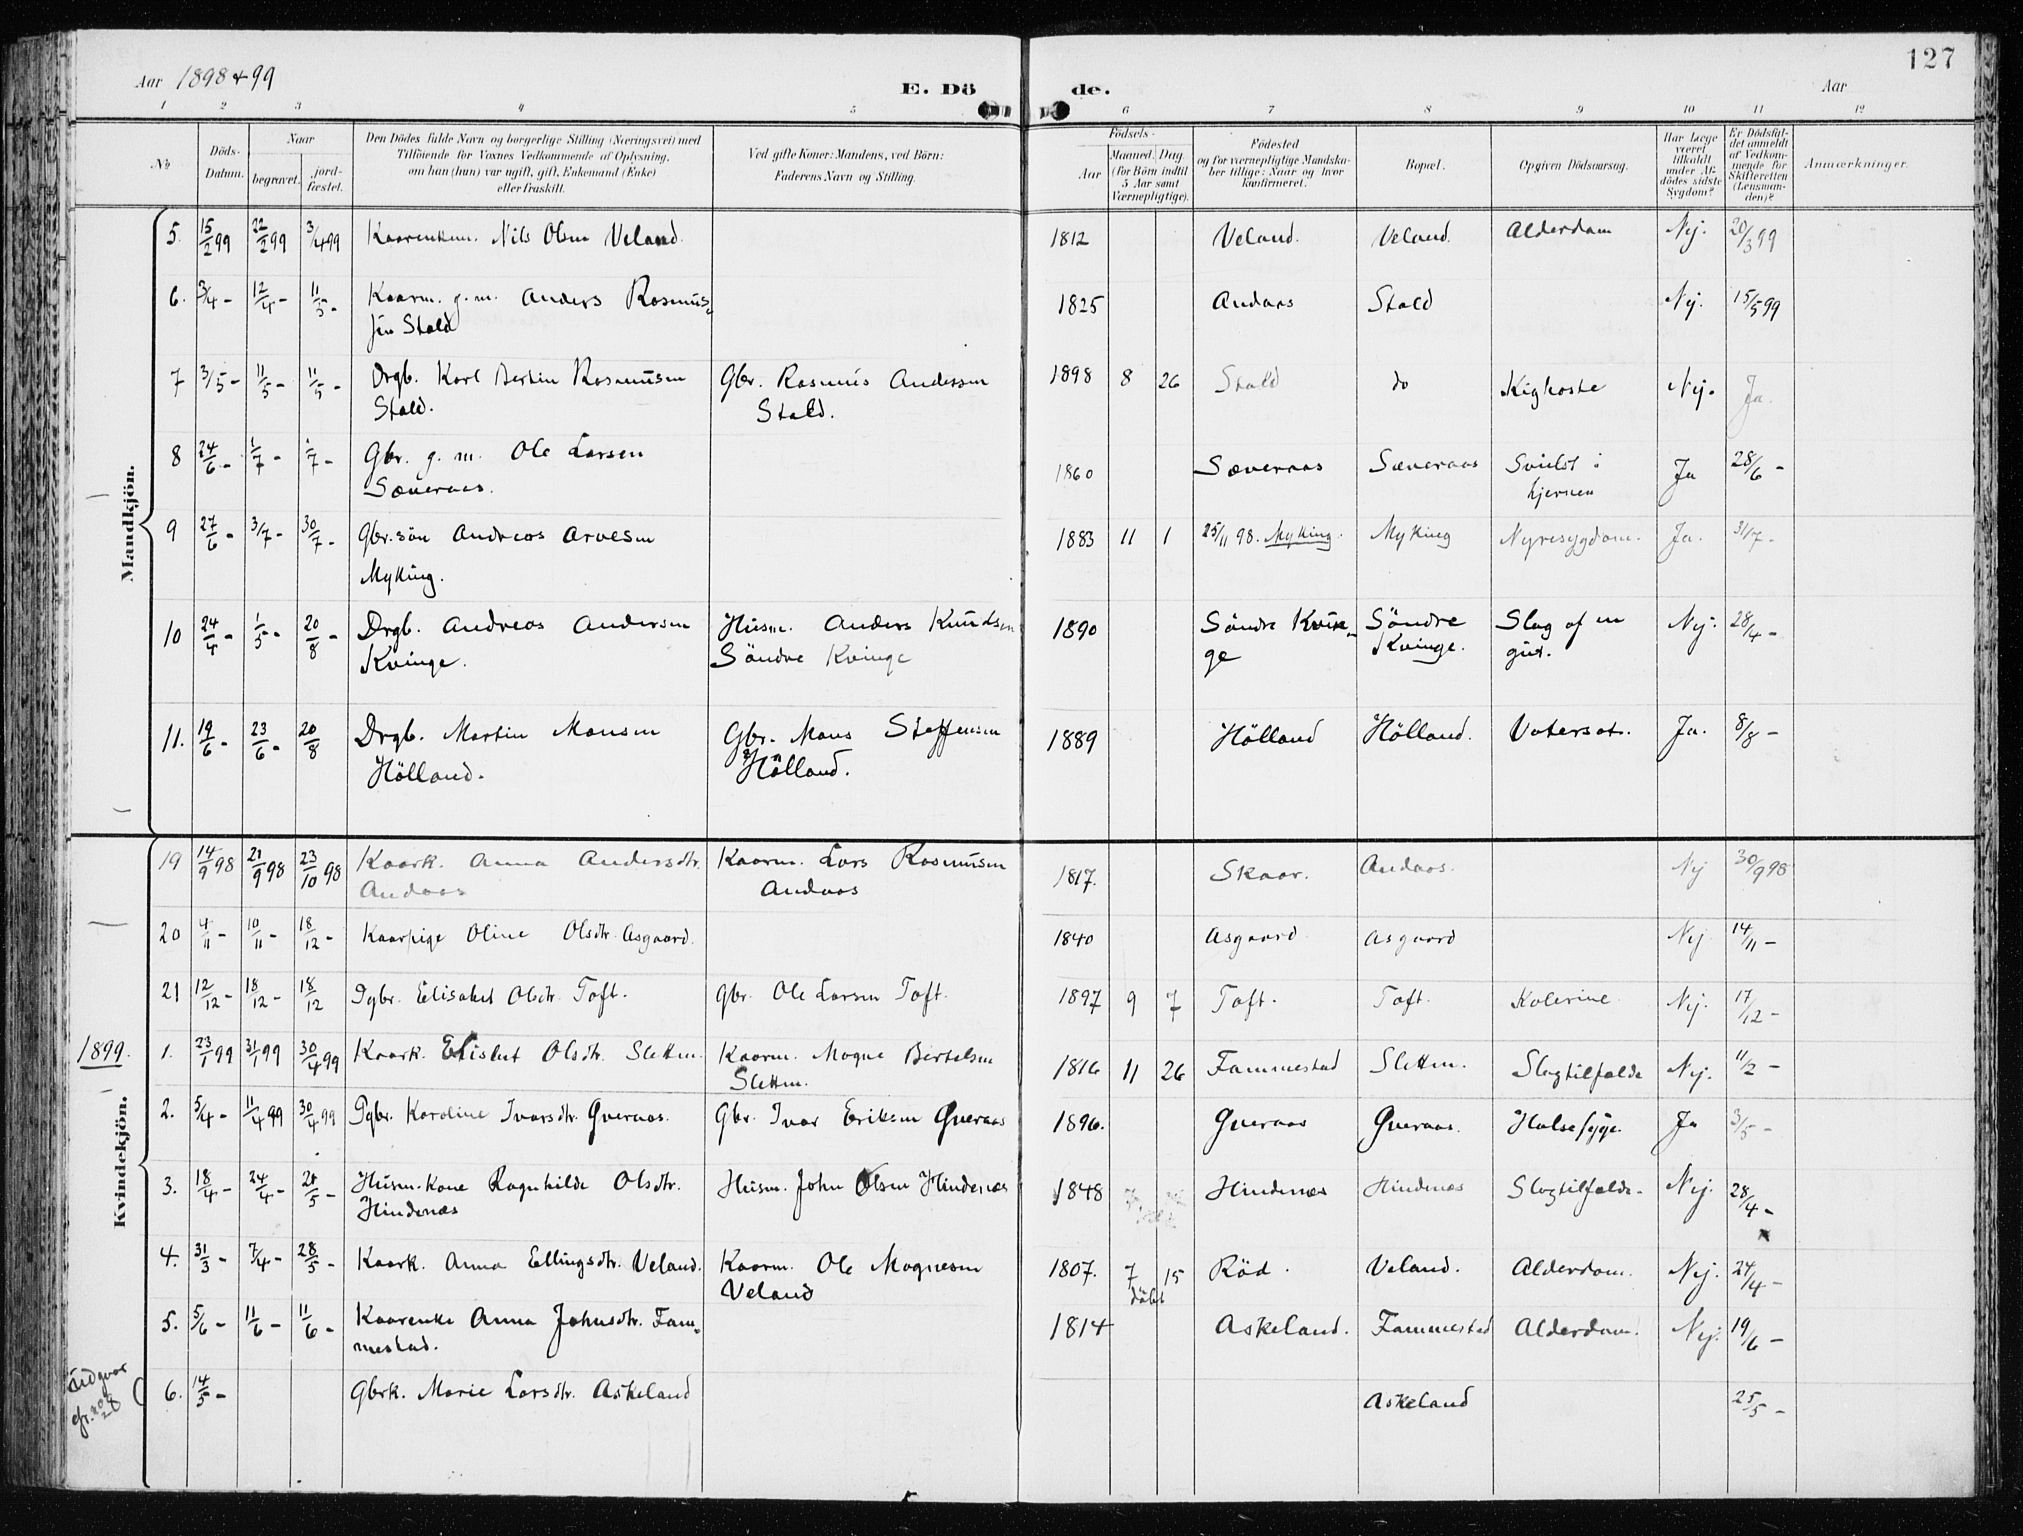 127
Aar 1898 & 99 E. Dö de. Aar
1 2 3 4 5 6 7 8 9 10 11 12
No. Döds-Datum. Naar begravet. jordfæstet. Den Dödes fulde Navn og borgerlige Stilling (Næringsvei) med Tilföiende for Voxnes Vedkommende af Oplysning, om han (hun) var ugift, gift, Enkemand (Enke) eller fraskilt. Ved gifte Koner: Mandens, ved Börn: Faderens Navn og Stilling. Födsels- Aar Maaned. Dag (for Börn indtil 5 Aar samt Værnepligtige). Födested og for værnepligtige Mandskaber tillige: Naar og hvor konfirmeret. Bopæl. Opgiven Dödsaarsag. Har Læge været tilkaldt under Afdödes sidste Sygdom? Er Dödsfaldet anmeldt af Vedkommende for Skifteretten (Lensmanden)? Anmærkninger.
Mandkjön.
5. 15/2 99 22/2 99 3/4 99 Kaarenkem. Nils Olsen Veland. 1812 Veland. Veland. Alderdom Nej. 20/3 99
6. 3/4 - 12/4 - 11/5 - Kaarm. g. m. Anders Rasmus- 1825 Andaas Stald Nej. 15/5 99
sen Stald
7 3/5 - 11/5 - 11/5 - Drgb. Karl Bertin Rasmusen Gbr. Rasmus Andersen 1898 8 26 Stald do Kighoste Nej. Ja.
Stald. Stald.
8 24/6 - 1/7 - 1/7 - Gbr. g. m. Ole Larsen 1860 Sæveraas Sæveraas Svulst i Ja 28/6 -
Sæveraas. hjernen
9 27/6 - 3/7 - 30/7 - Gbr.sön Andreas Arvesen 1883 11 1 25/11 98. Myking. Myking Nyresygdom. Ja. 31/7 -
Myking.
10 24/4 - 1/5 - 20/8 - Drgb. Andreas Andersen Husm. Anders Knudsen 1890 Söndre Kvin- Söndre Slag af en Nej. 28/4 -
Kvinge. Söndre Kvinge ge Kvinge. gut.
11. 19/6 - 23/6 - 20/8 Drgb. Martin Monsen Gbr. Mons Steffensen 1889 Hölland Hölland. Vatersot. Ja. 8/8 -
Hölland. Hölland.
19 14/9 98 21/9 98 23/10 98 Kaark. Anna Andersdtr. Kaarm. Lars Rasmusen 1817. Skaar. Andaas. Nej 30/9 98
Andaas Andaas
20 4/11 - 10/11 - 18/12 - Kaarpige Oline Olsdtr. Asgaard. 1840 Asgaard Asgaard Nej 14/11 -
21 12/12 - 18/12 - 18/12 Pgbr. Elisabet Olsdtr. Toft. Gbr. Ole Larsen Toft. 1897 9 7 Toft. Toft. Kolerine Nej. 17/12 -
1899.
1. 23/1 99 31/1 99 30/4 99 Kaark. Elisbet Olsdtr. Sletten. Kaarm. Mogne Bertelsen 1816 11 26 Fammestad Sletten. Slagtilfælde Nej. 11/2 -
Sletten.
Kvindekjön.
2. 5/4 - 11/4 99 30/4 99 Pgbr. Karoline Ivarsdtr. Qveraas. Gbr. Ivar Eriksen Qveraas 1896. Qveraas Qveraas. Halsesyge. Ja 3/5 -
3. 18/4 - 24/4 - 21/5 - Husm.kone Ragnhilde Olsdtr. Husm. John Olsen Hindenæs 1848 Hindenæs Hindenæs Slagtilfælde. Nej. 28/4 -
Hindenæs
4. 31/3 - 7/4 - 28/5 - Kaark. Anna Ellingsdtr. Veland. Kaarm. Ole Magnesen 1807. 7 15 Röd. Veland. Alderdom. Nej. 24/4 -
Veland döbt
5. 5/6 - 11/6 - 11/6 - Kaarenke Anna Johnsdtr. Fam- 1814 Askeland. Fammestad Alderdom. Nej. 19/6 -
mestad.
6. 14/5 - Gbrk. Marie Larsdtr. Askeland Askeland 25/5 -